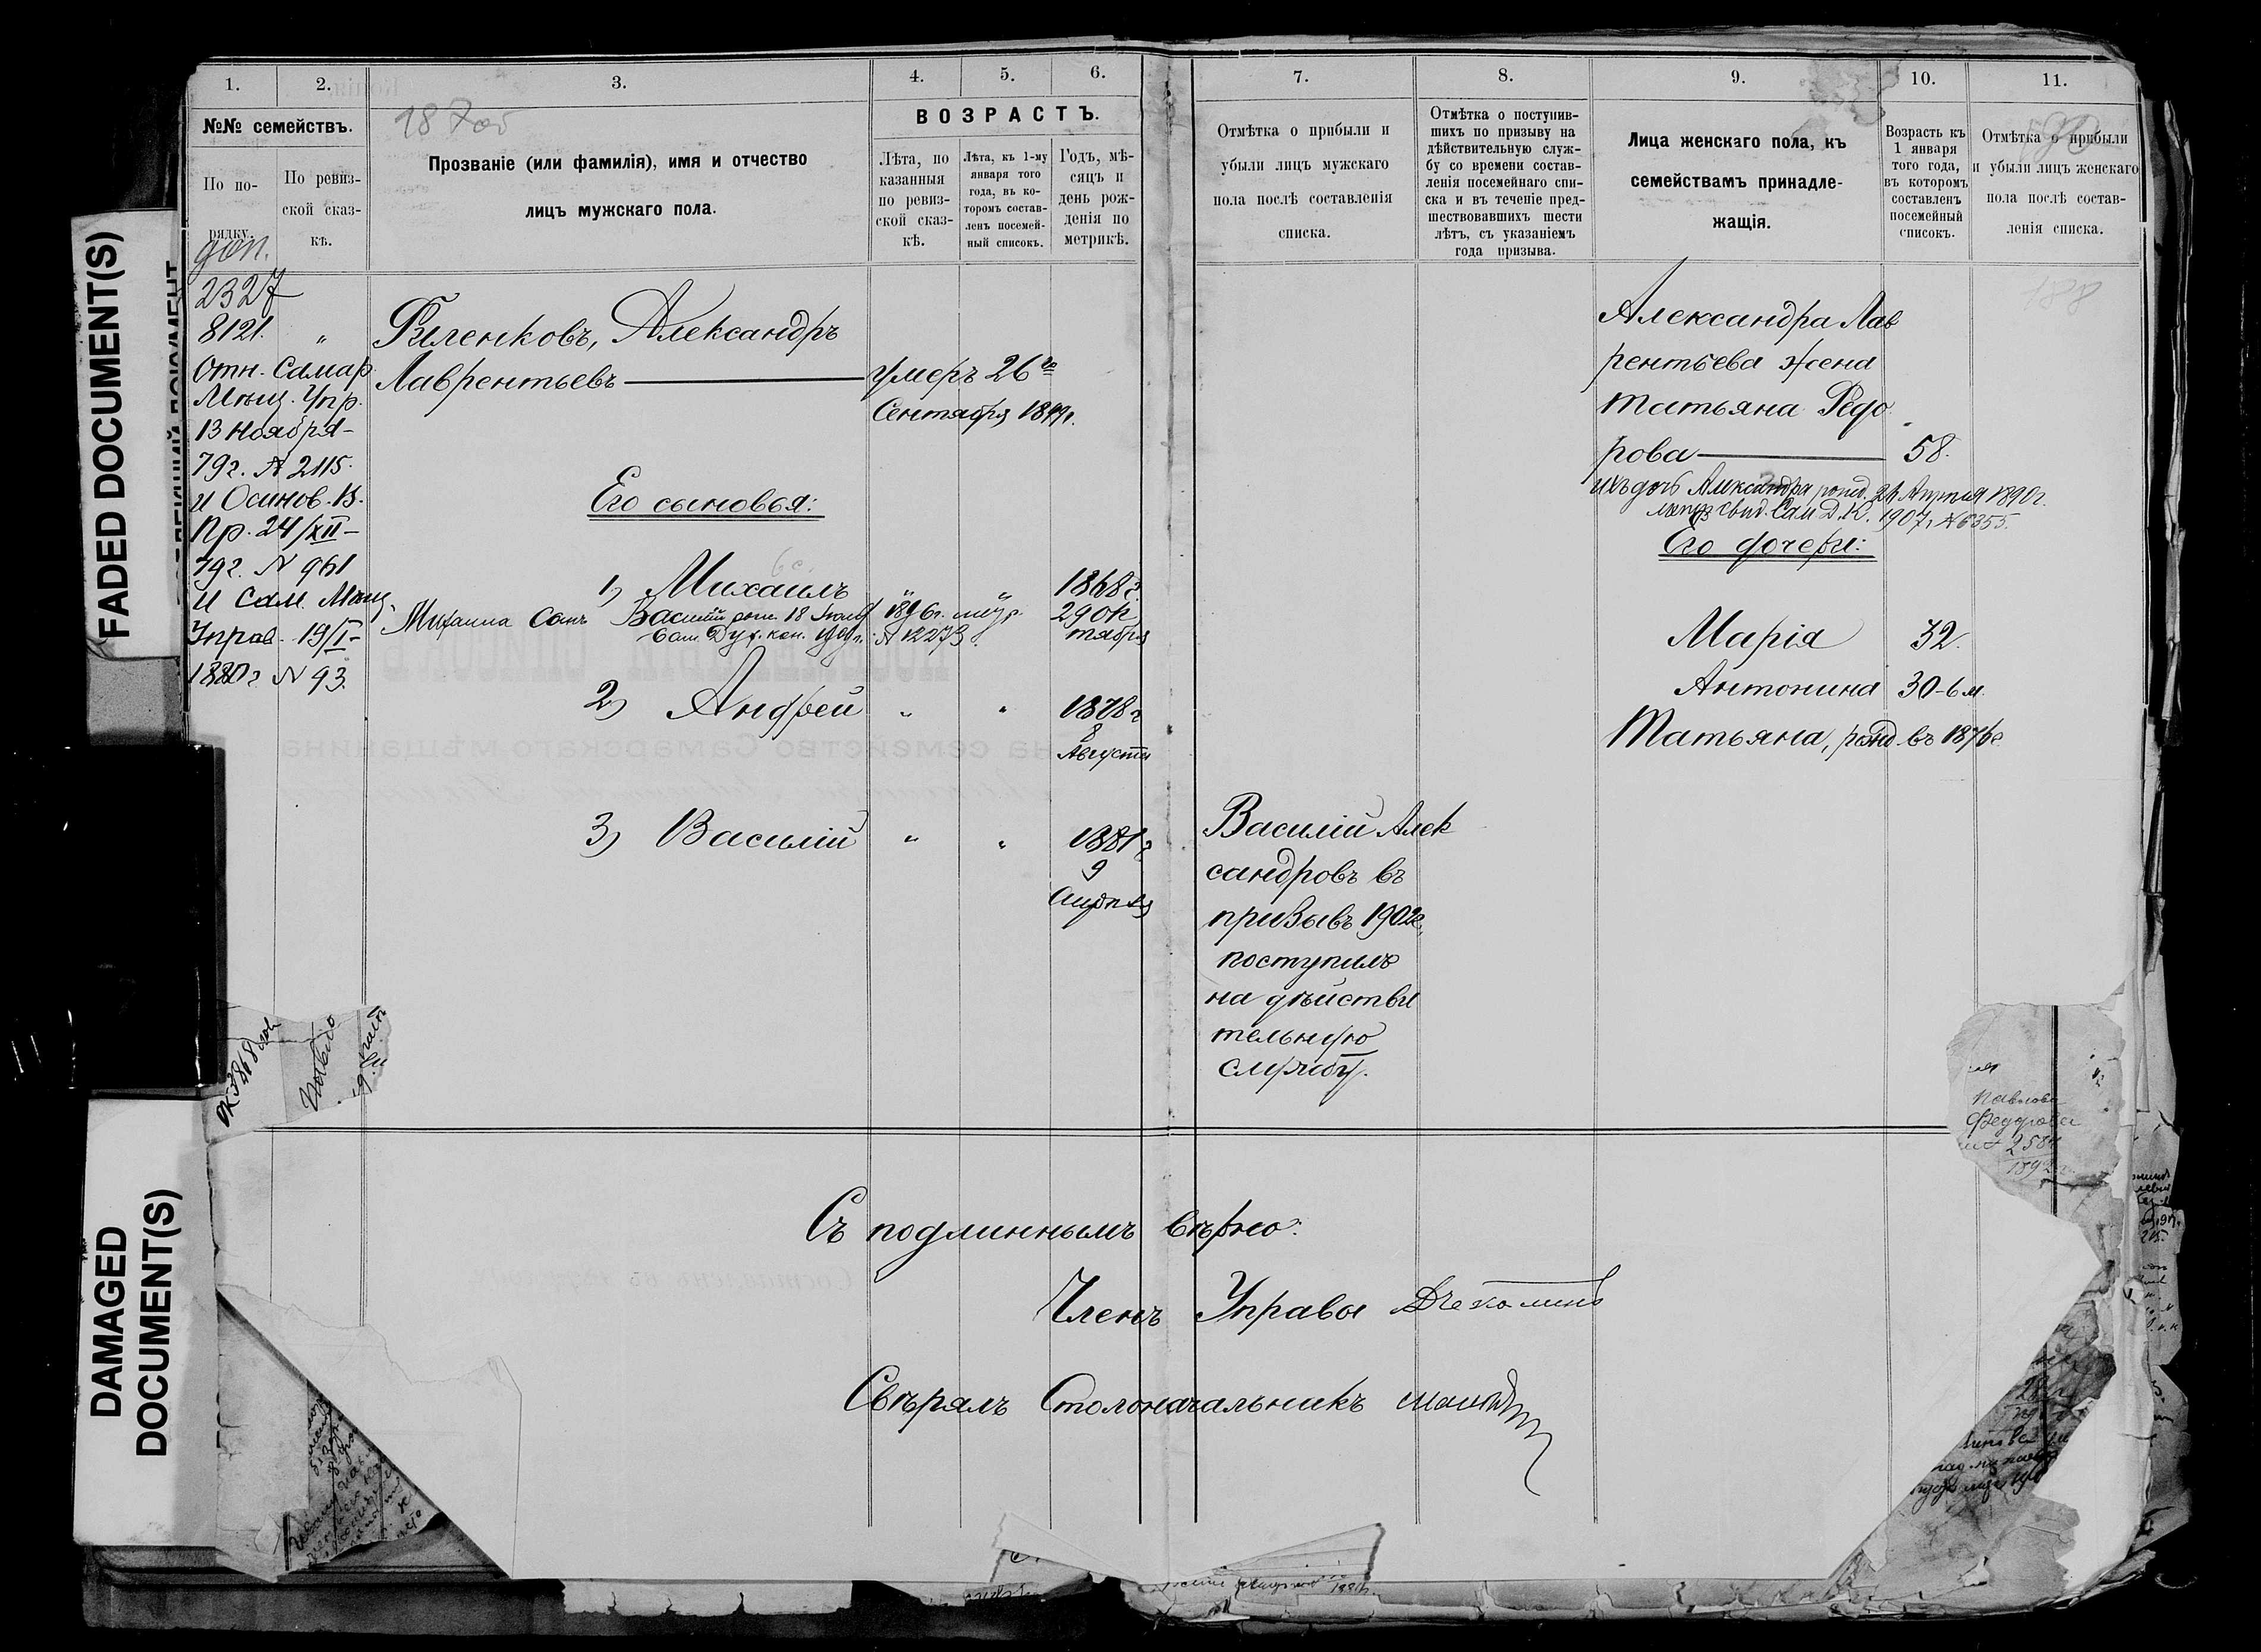 FADED DOCUMENT(S)
DAMAGED
DOCUMENT(S)
1.
2.
3.
4.
5.
6.
7.
8.
9.
10.
11.
№№ семействъ.
По по-
рядку.
По ревиз-
ской сказ-
кѣ.
Прозваніе (или фамилія), имя и отчество
лицъ мужскаго пола.
ВОЗРАСТЪ.
Лѣта, по
казанныя
по ревиз-
ской сказ-
кѣ.
Лѣта, къ 1-му
января того
года, въ ко-
торомъ состав-
ленъ посемей-
ный списокъ.
Годъ, мѣ-
сяцъ и
день рож-
денія по
метрикѣ.
Отмѣтка о прибыли и
убыли лицъ мужскаго
пола послѣ составленія
списка.
Отмѣтка о поступив-
шихъ по призыву на
дѣйствительную служ-
бу со времени состав-
ленія посемейнаго спи-
ска и въ теченіе пред-
шествовавшихъ шести
лѣтъ, съ указаніемъ
года призыва.
Лица женскаго пола, къ
семействамъ принадле-
жащія.
Возрасть къ
1 января
того года,
въ которомъ
составленъ
посемейный
списокъ.
Отмѣтка о прибыли
и убыли лицъ женскаго
пола послѣ состав-
ленія списка.
доп.
2327
8121. "
Отн. Самар.
Мѣщ. Упр.
13 Ноября
79г. № 2115.
и Осинов. В.
Пр. 24/XII-
79г. № 961
и Сам. Мѣщ.
Управ. 19/I-
1880г. № 93.
Филенковъ, Александръ
Лаврентьевъ — умеръ 26го
Сентября
Его сыновья:
1) Михаилъ " " 1868г.
29 Ок
тября
Михаила Сынъ Василій рож. 18
Сам. Дух. кон. № 12273.
2) Андрей " " 1878г
8
Августа
3) Василій " " 1881г
9
Апрѣля
Василій Алек
сандровъ въ
призывъ 1902г.
поступилъ
на дѣйстви
тельную
службу.
Александра Лав
рентьева жена
Татьяна Федо
рова — 58.
ихъ дочь Александра рожд. 1890г.
Сам. Д. К. 1907г. № 6355.
Его дочери:
Марія 32.
Антонина 30-6м.
Татьяна, рожд. въ 1876г
188
Павлова
Федорова
Съ подлиннымъ вѣрно:
Членъ Управы
Свѣрялъ Столоначальникъ